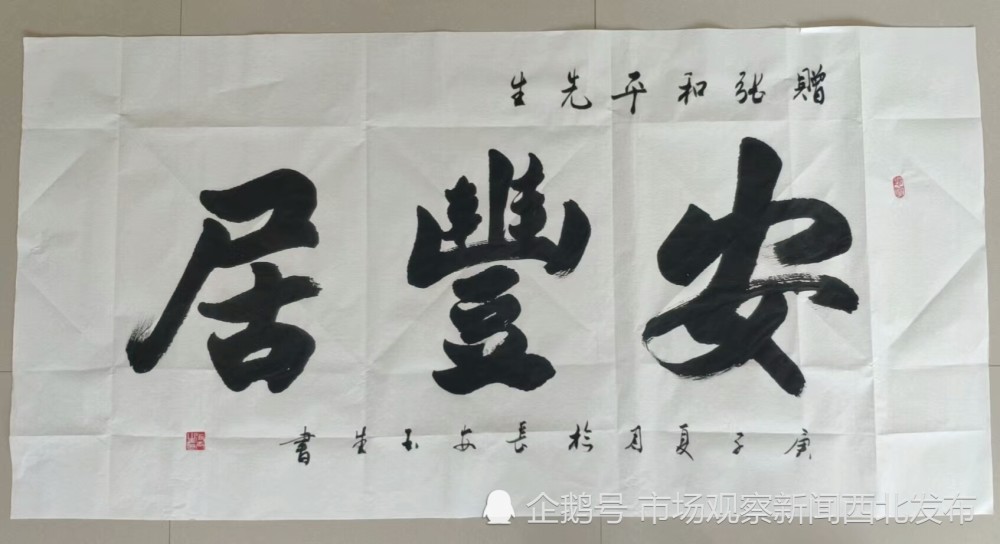 贈張和平先生
安豐居
庚子夏月於長安玉生書
企鹅号 市场观察新闻西北发布